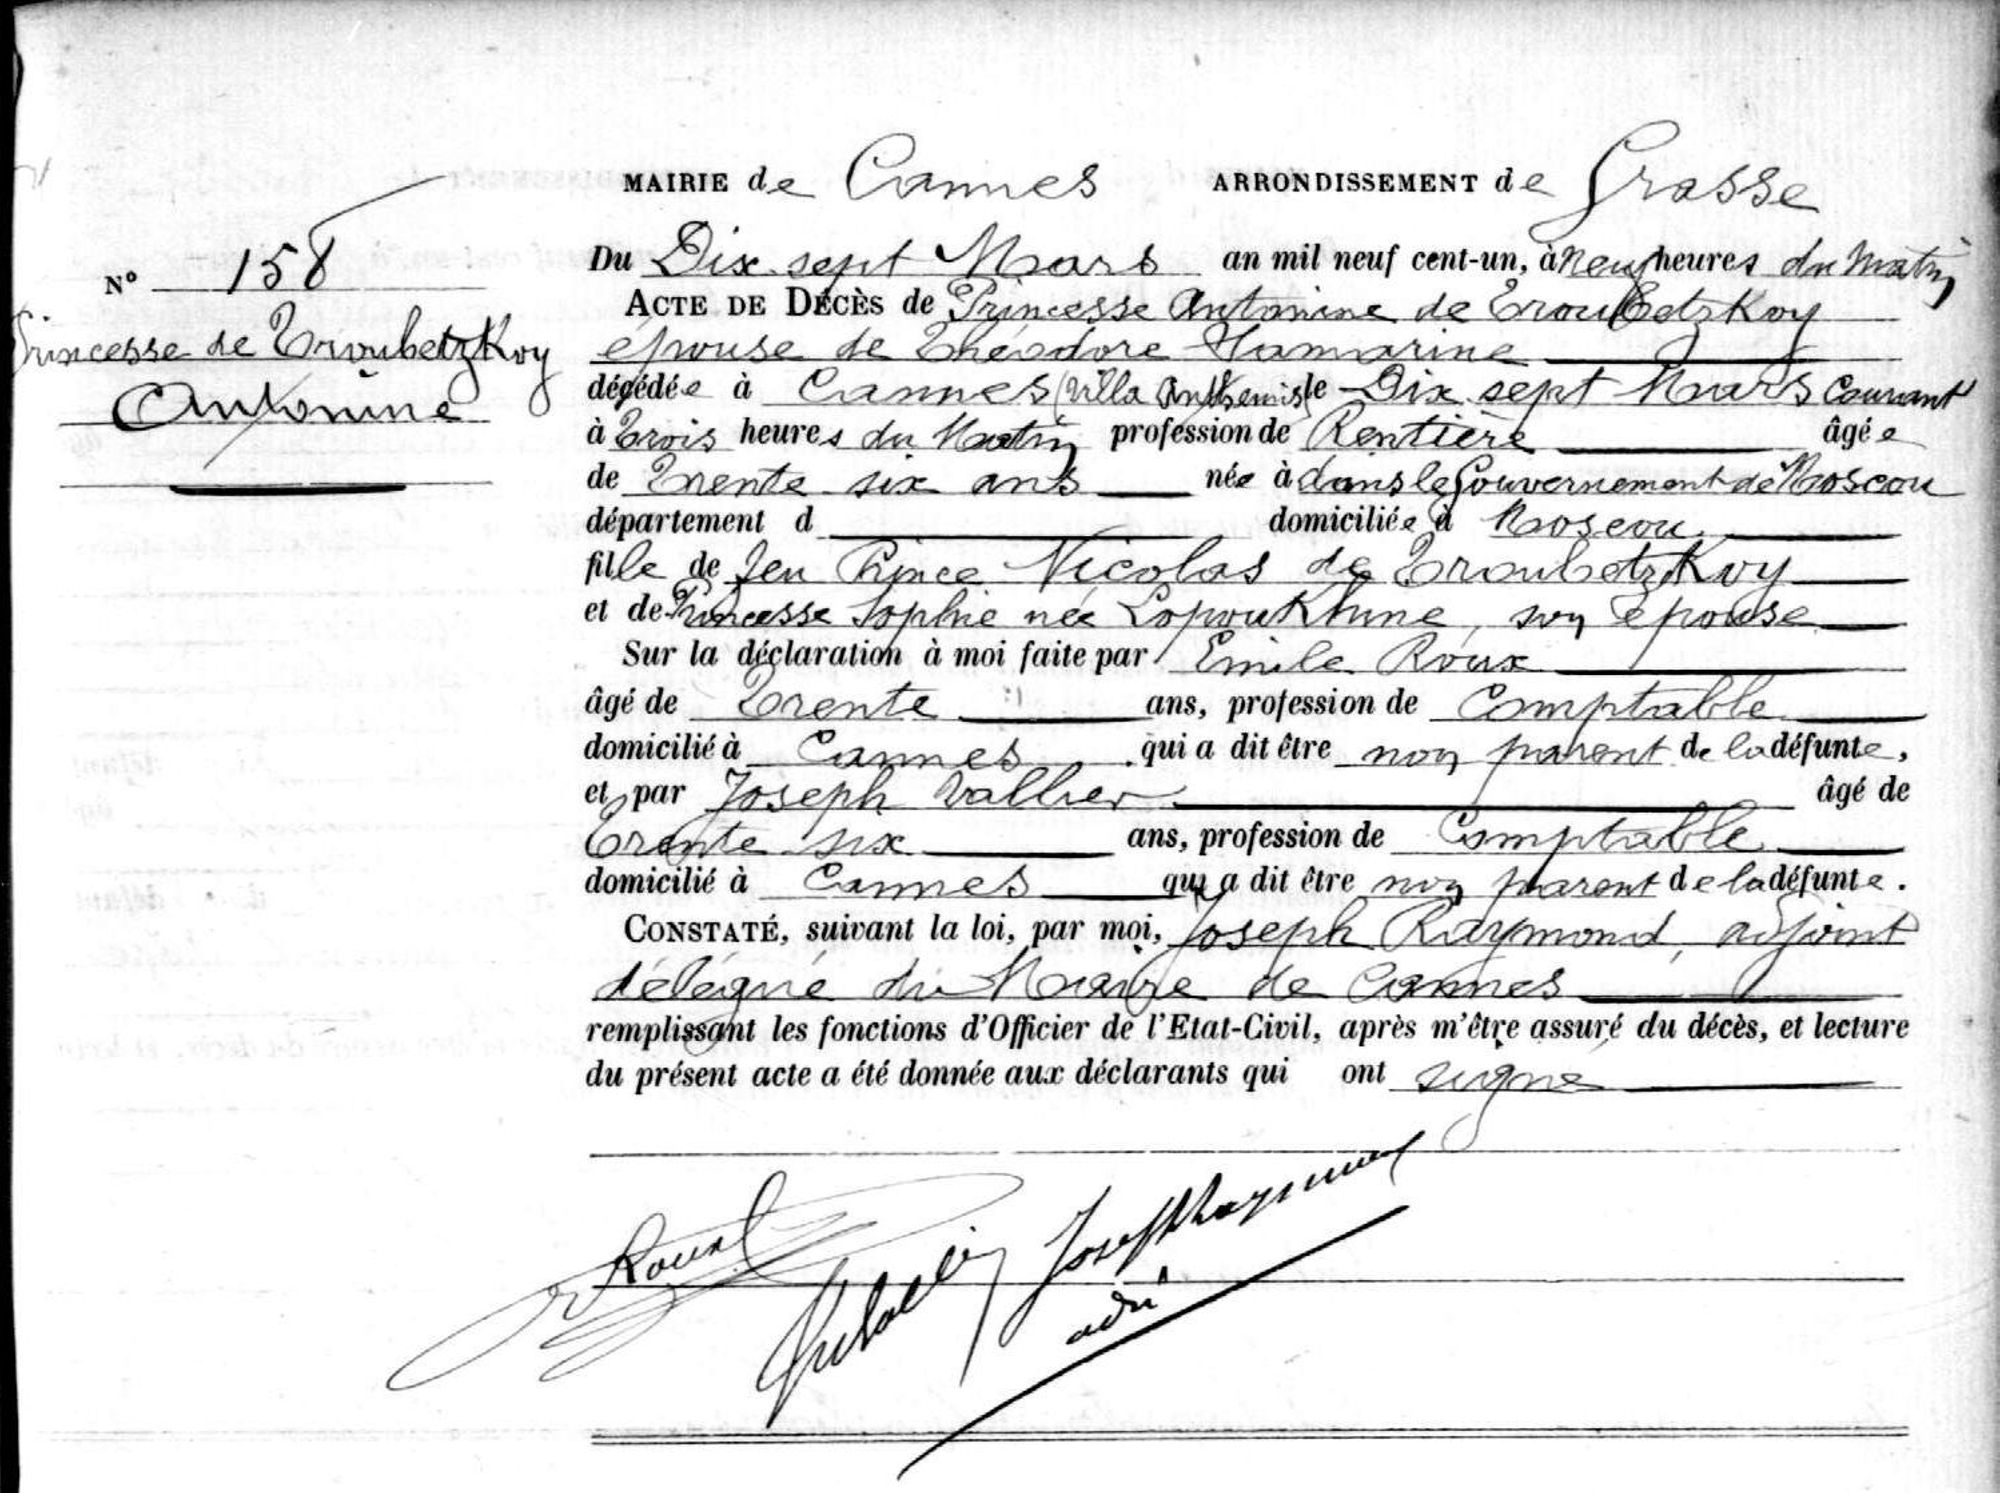 MAIRIE de Cannes ARRONDISSEMENT de Grasse
N° 158
Princesse de Troubetzkoy
Antonine
Du Dix sept Mars an mil neuf cent-un, à neuf heures du matin
ACTE DE DÉCÈS de Princesse Antonine de Troubetzkoy
épouse de Théodore Hamarine
décédée à Cannes (villa Anthemis) le Dix sept Mars courant
à Trois heures du Matin profession de Rentière âgée
de Trente six ans née à dans le Gouvernement de Moscou
département d domiciliée à Moscou
fille de feu Prince Nicolas de Troubetzkoy
et de Princesse Sophie née Lopoukhine, son épouse
Sur la déclaration à moi faite par Emile Roux
âgé de Trente ans, profession de Comptable
domicilié à Cannes qui a dit être non parent de la défunte,
et par Joseph Vallier âgé de
Trente six ans, profession de Comptable
domicilié à Cannes qui a dit être non parent de la défunte.
CONSTATÉ, suivant la loi, par moi, Joseph Raymond, adjoint
délégué du Maire de Cannes
remplissant les fonctions d'Officier de l'Etat-Civil, après m'être assuré du décès, et lecture
du présent acte a été donnée aux déclarants qui ont signé
Roux
Joseph Raymond
adj